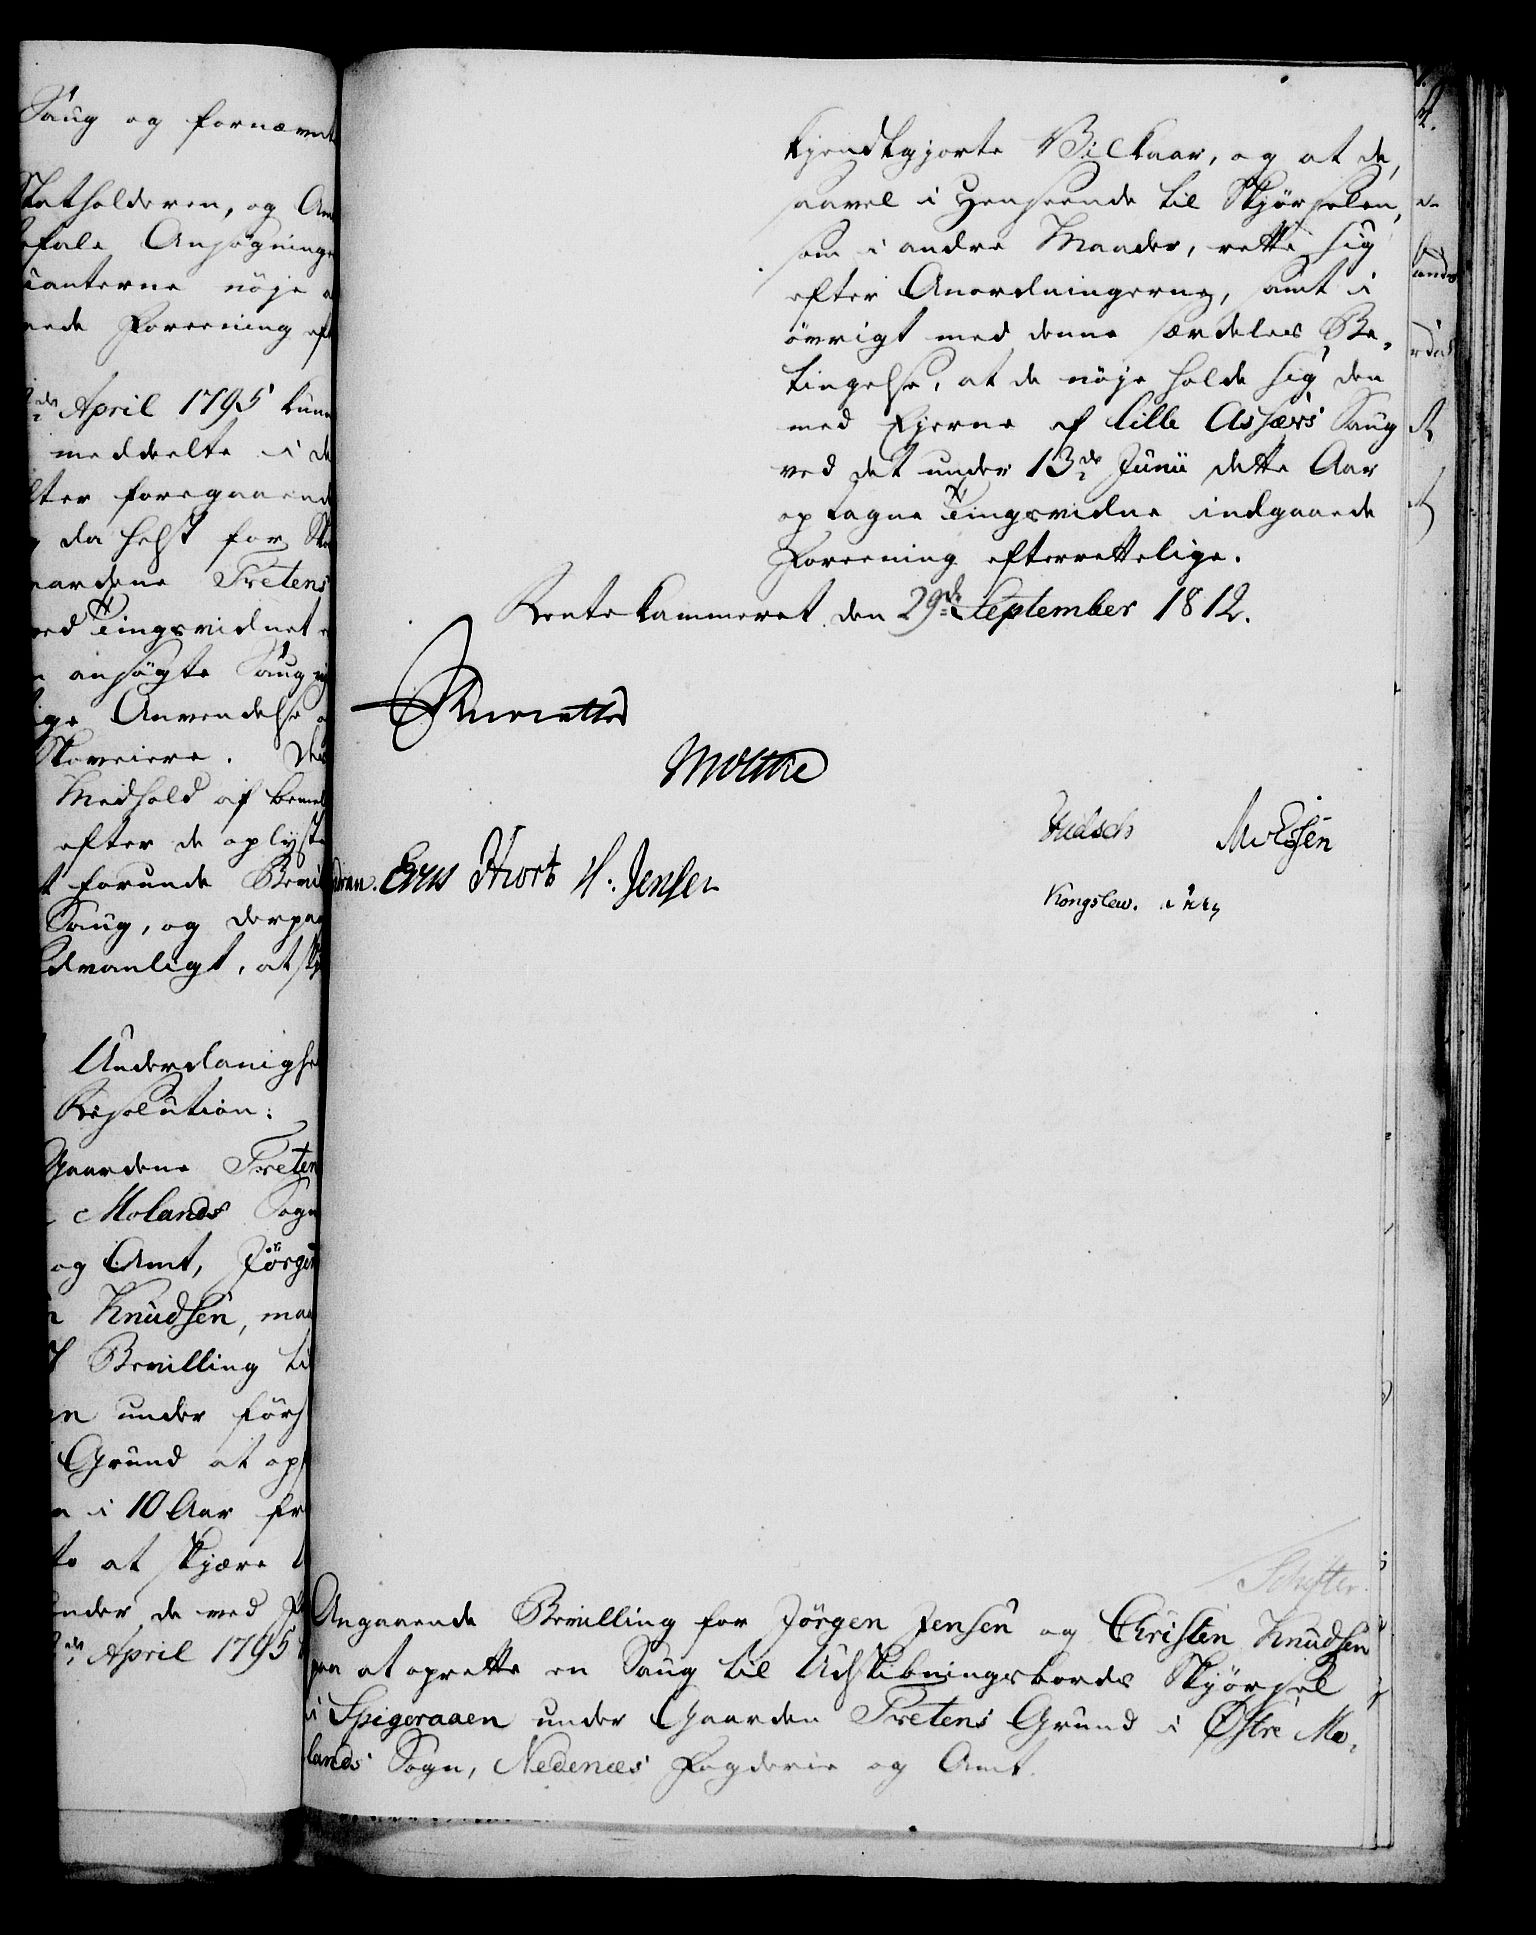 Saug og fornævnte
Statholderen, og Am
efale Ansøgninge
canterne nöje
Foreening eft
April 1795 kun
meddeelte i de
foregaaend
da helst for
aardene Tretens
ved Tingsvidnet
ansøgte Saug
Anvendelse
Skoveiere.
Medhold af
efter de oplyste
forunde Bevil
Saug, og derpaa
sædvanligt, at
Underdanighe
Resolution:
Gaardene Treten
Molands Sogn
og Amt, Jörgen
Knudsen, maa
Bevilling til
under förs
Grund at op
i 10 Aar fr
at skjære
under de ved
April 1795
kjendtgjorte Vilkaar, og at de,
saavel i Henseende til Skjörselen,
som i andre Maader, rette sig
efter Anordningerne, samt i
övrigt med denne særdeles Be-
tingelse, at de nöje holde sig den
med Ejerne af lille Assævs Saug
ved det under 13de Junii dette Aar
optagne Tingsvidne indgaaede
Foreening efterrettelige.
Rentekammeret den 29de September 1812.
Moltke
Hiort H: Jensen
Kongslew.
Schifter
Angaaende Bevilling for Jörgen Jensen og Christen Knudsen
paa at oprette en Saug til Udskibningsbords Skjörsel
i Spigeraaen under Gaarden Tretens Grund i Østre Mo-
lands Sogn, Nedenæs Fogderie og Amt.